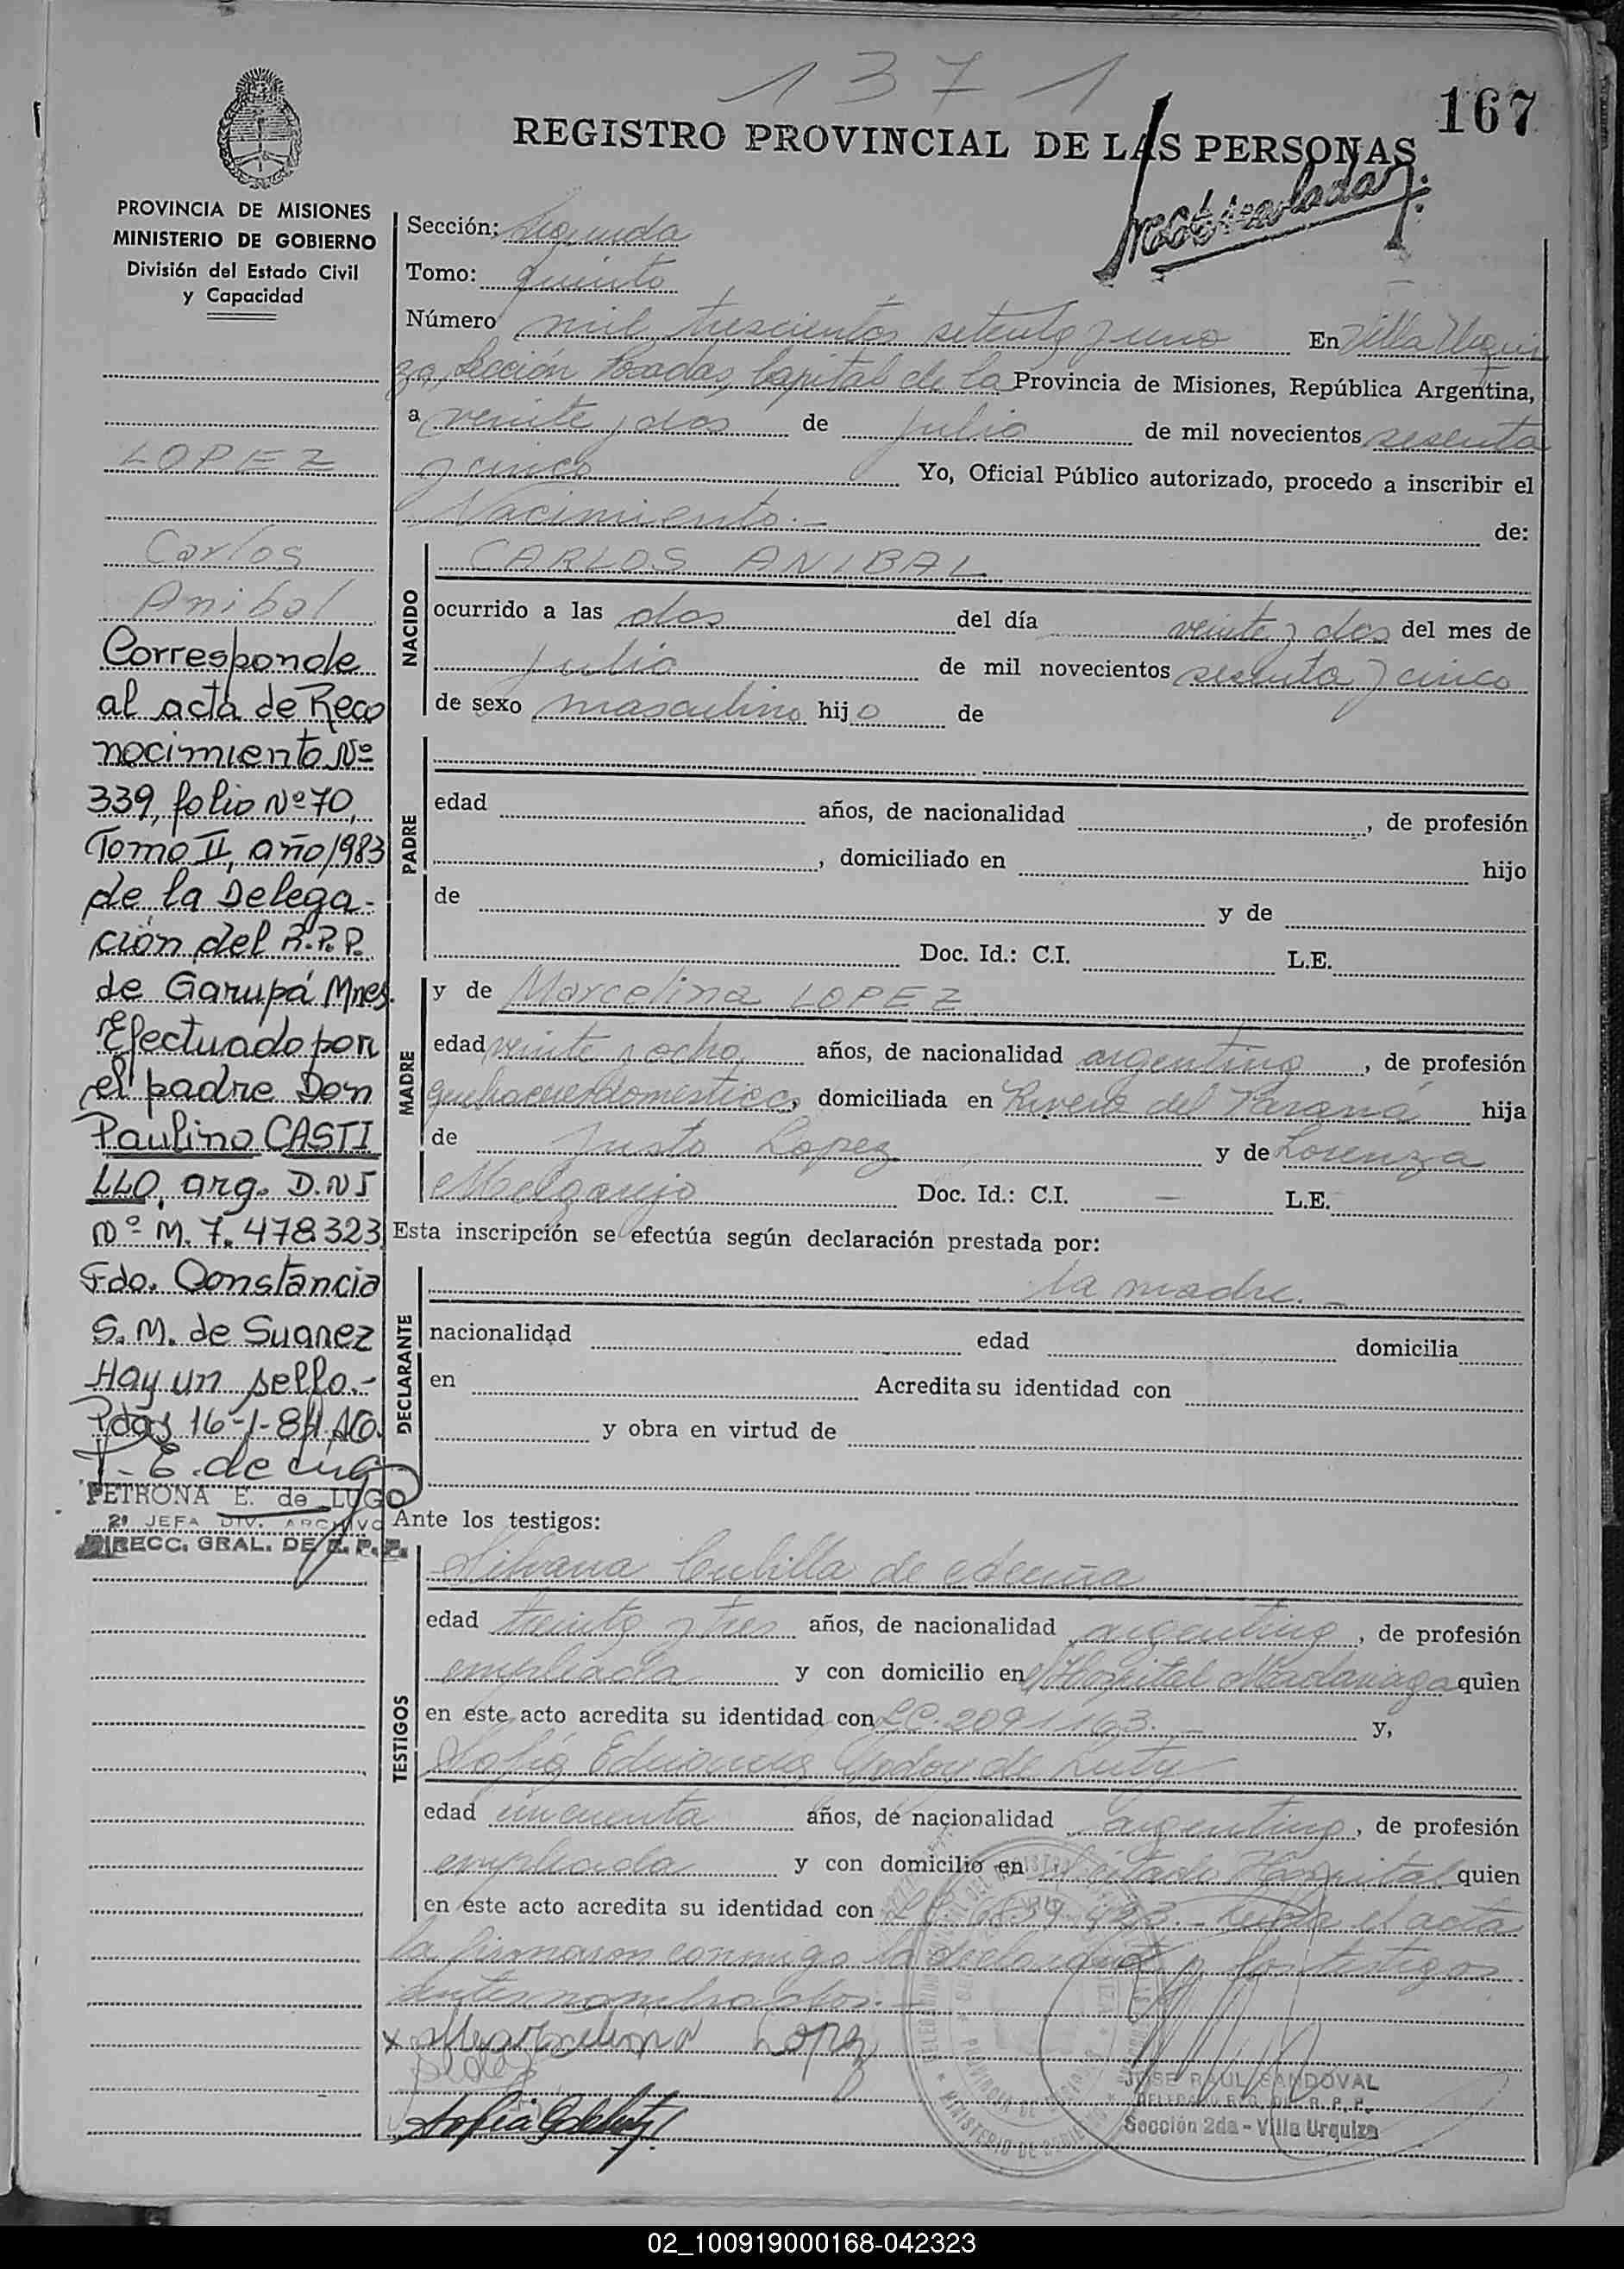 1371
167
REGISTRO PROVINCIAL DE LAS PERSONAS
PROVINCIA DE MISIONES
MINISTERIO DE GOBIERNO
División del Estado Civil
y Capacidad
Sección: Segunda
Tomo: quinto
Número mil trescientos setenta y uno En Villa Urqui
za, Sección Posadas, Capital de la Provincia de Misiones, República Argentina,
a veinte y dos de julio de mil novecientos sesenta
y cinco Yo, Oficial Público autorizado, procedo a inscribir el
Nacimiento.- de:
LOPEZ
Carlos
Anibal
Corresponde
al acta de Reco
nocimiento Nº
339, folio Nº 70,
Tomo II, año 1983
de la Delega-
ción del R.P.P.
de Garupá Mnes.
Efectuado por
el padre Don
Paulino CASTI
LLO, arg. D.N.I
Nº M. 7.478.323
Fdo. Constancia
S. M. de Suarez
Hay un sello.-
Pdas 16-1-84
PETRONA E. de LUGO
2º JEFA DIV. ARCHIVO
DIRECC. GRAL. DE R.P.P.
NACIDO
CARLOS ANIBAL
ocurrido a las dos del día veinte y dos del mes de
julio de mil novecientos sesenta y cinco
de sexo masculino hijo de
PADRE
edad años, de nacionalidad , de profesión
, domiciliado en hijo
de y de
Doc. Id.: C.I. L.E.
MADRE
y de Marcelina LOPEZ
edad veinte y ocho años, de nacionalidad argentina, de profesión
quehaceres domésticos, domiciliada en Rivera del Paraná hija
de Justo Lopez y de Lorenza
Melgarejo Doc. Id.: C.I. — L.E.
Esta inscripción se efectúa según declaración prestada por:
DECLARANTE
la madre.-
nacionalidad edad domicilia
en Acredita su identidad con
y obra en virtud de
Ante los testigos:
TESTIGOS
Silvana Cubilla de
edad treinta y tres años, de nacionalidad argentina, de profesión
empleada y con domicilio en Hospital Madariaga quien
en este acto acredita su identidad con L.C. 2091163.- y,
Sofía Godoy de
edad cincuenta años, de nacionalidad argentina, de profesión
empleada y con domicilio en citado Hospital quien
en este acto acredita su identidad con el acta
la firmaron conmigo la declarante y los testigos
antes nombrados.-
x Marcelina Lopez
JOSE RAUL SANDOVAL
Sección 2da - Villa Urquiza
02_100919000168-042323